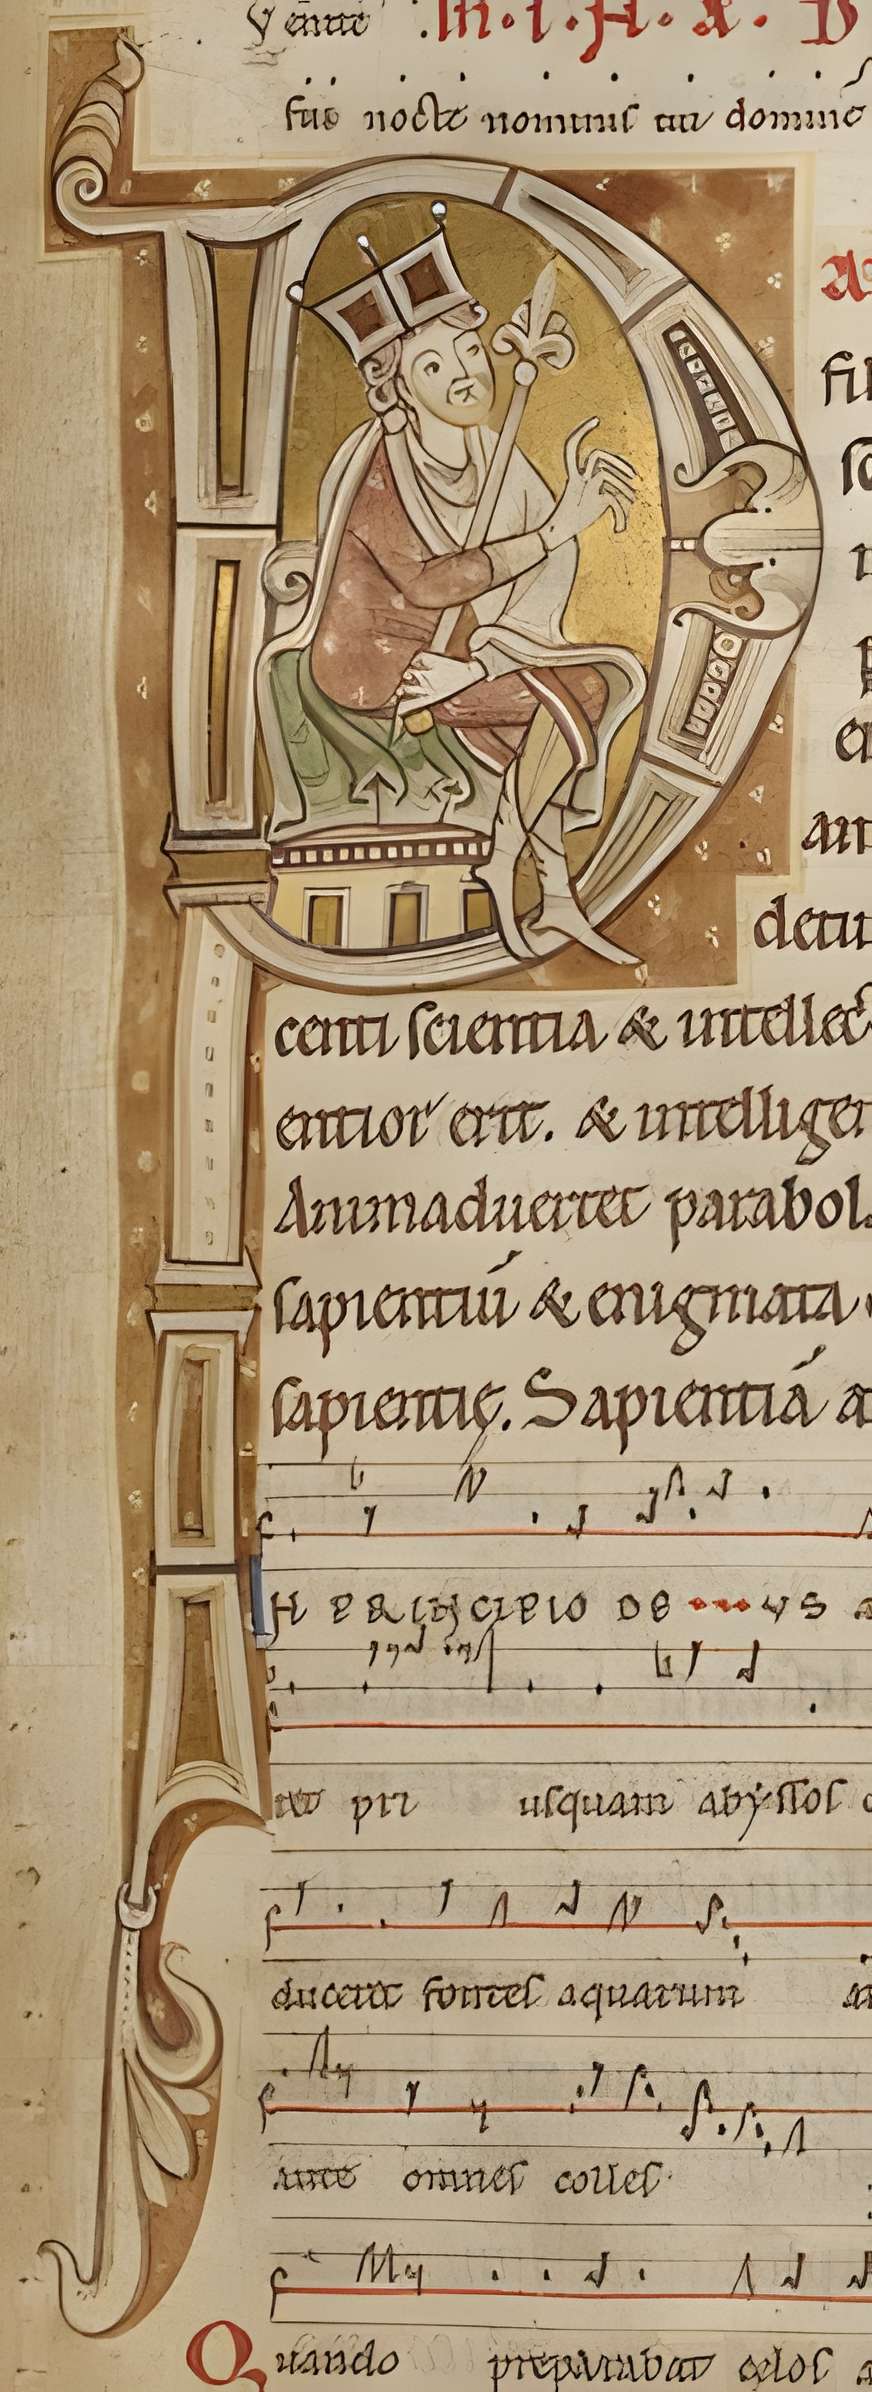 Venite .m.i.H.x. D
sue nocte nominis tui domine
A
fil
so
n
p
er
aut
detu
centi scientia & intellec
entior erit. & intelliget
Animaduertet parabol
sapientiū & enigmata
sapientię. Sapientiā a
H PRINCIPIO DE....VS a
pri usquam abyssos
duceret fontes aquarum
ante omnes colles
Quando preparabat celos a